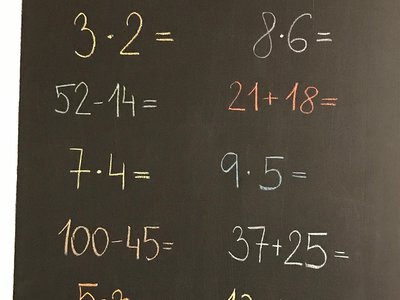 3·2=    8·6=
52-14=    21+18=
7·4=    9·5=
100-45=    37+25=